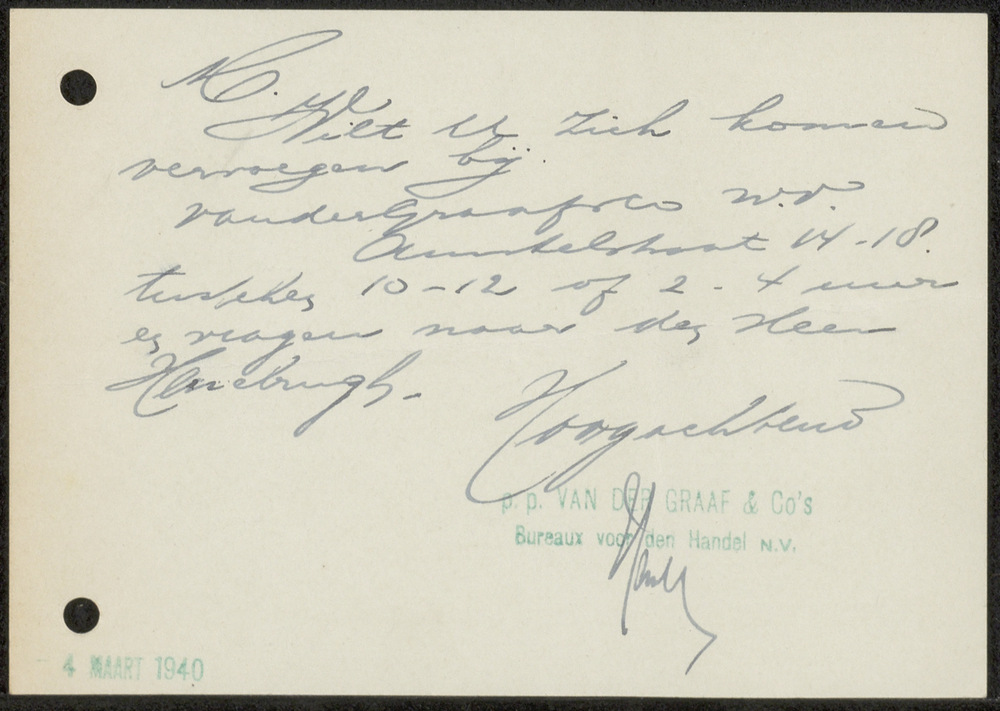 M.
Wilt U zich komen
vervoegen bij
van der Graaf & Co N.V.
Amstelstraat 14-18.
tusschen 10-12 of 2-4 uur
en vragen naar den Heer
Hoogachtend
p.p. VAN DER GRAAF & Co's
Bureaux voor den Handel N.V.
- 4 MAART 1940